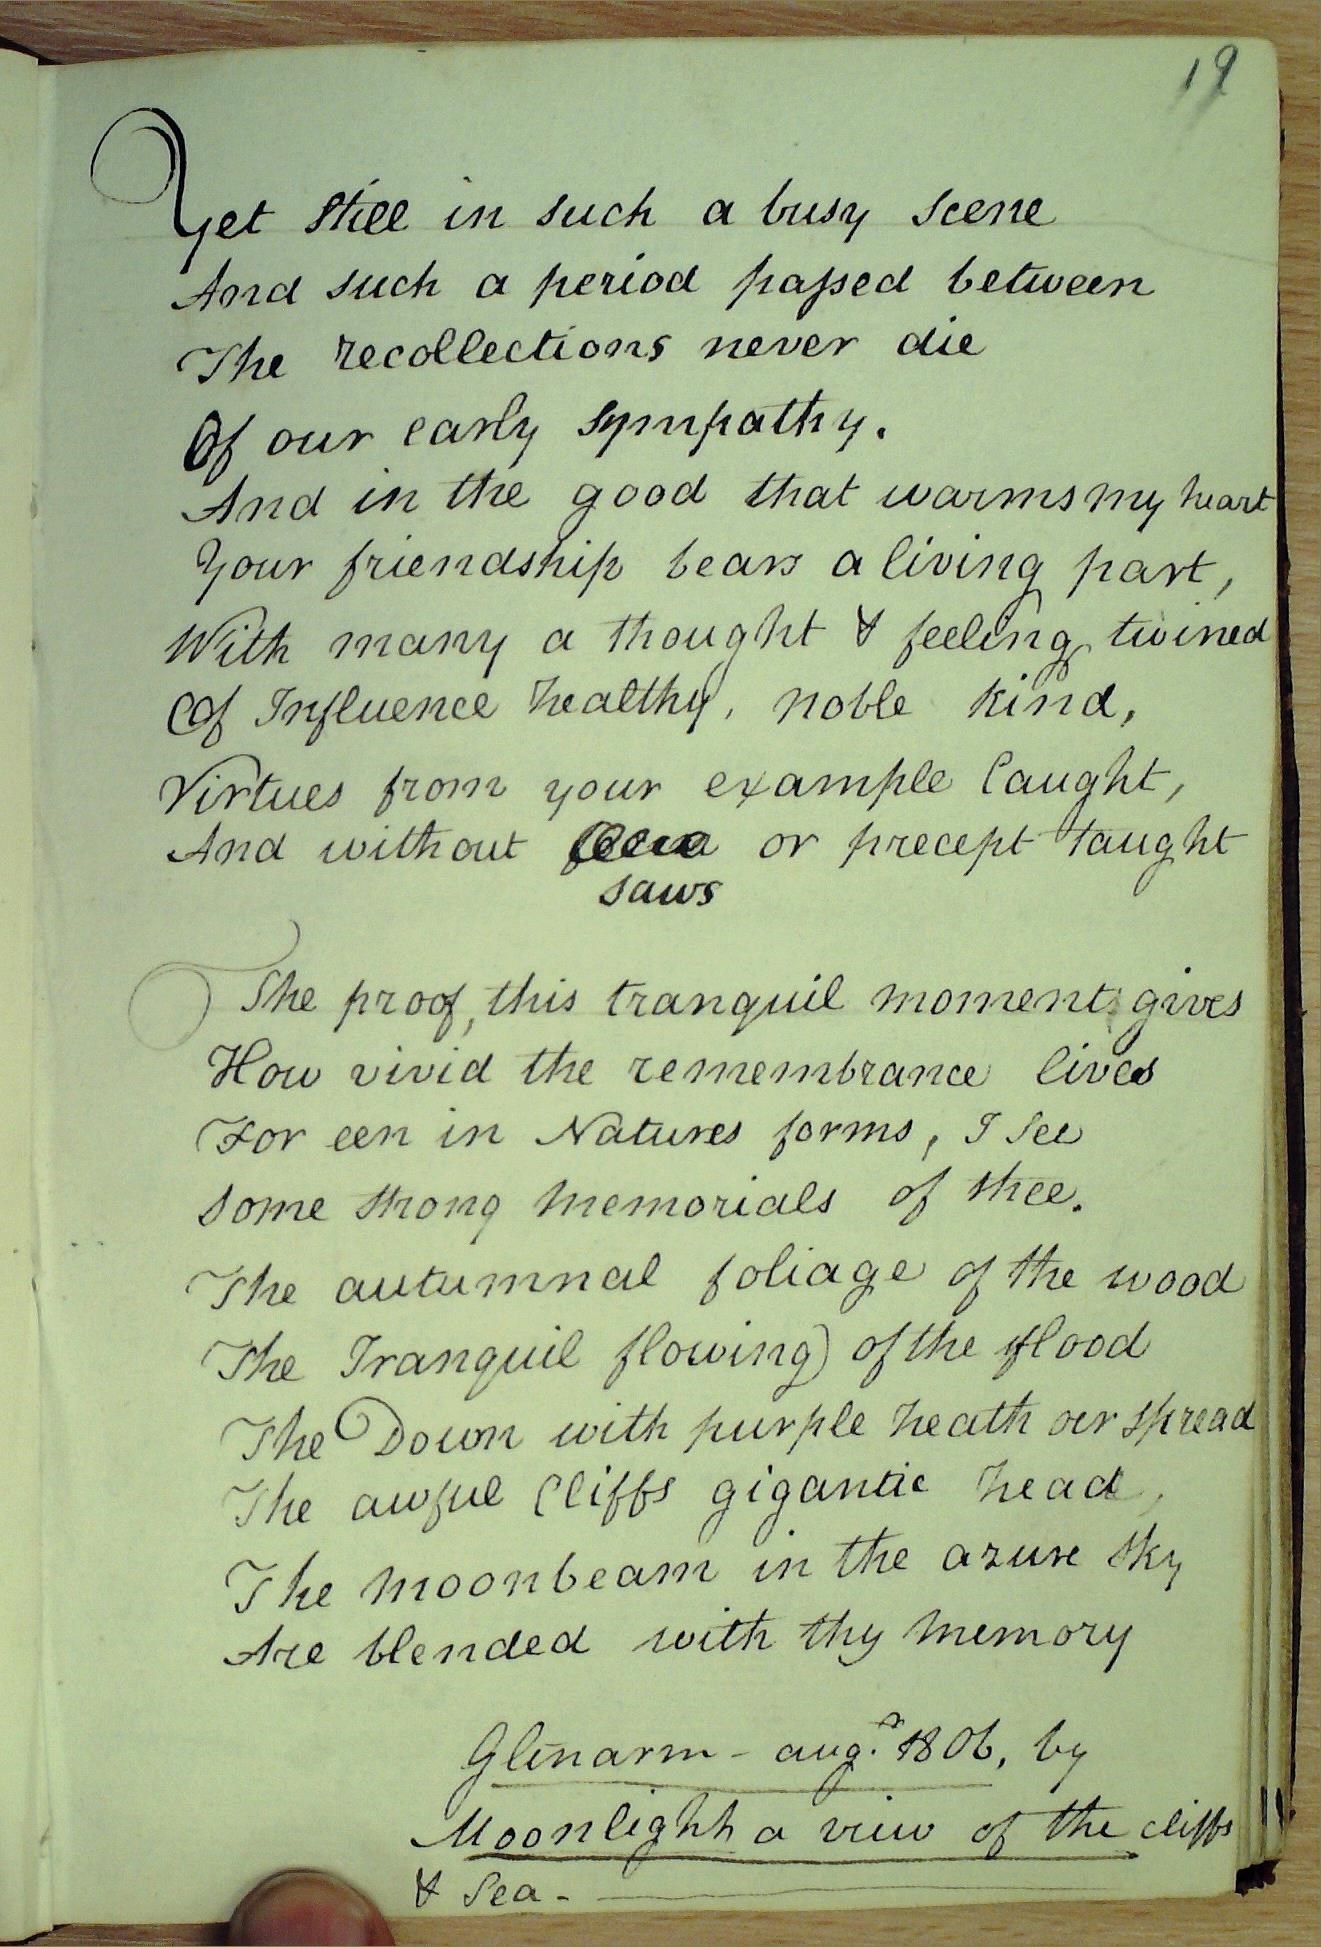 19
Yet still in such a busy scene
And such a period passed between
The recollections never die
Of our early sympathy.
And in the good that warms my heart
Your friendship bears a living part,
With many a thought & feeling twined
Of Influence healthy, noble kind,
Virtues from your example caught,
And without or precept taught
saws
The proof, this tranquil moment gives
How vivid the remembrance lives
For een in Natures forms, I see
Some strong memorials of thee.
The autumnal foliage of the wood
The Tranquil flowing of the flood
The Down with purple heath oer spread
The awful Cliffs gigantic head,
The moonbeam in the azure sky
Are blended with thy memory
Glenarm - augt. 1806, by
Moonlight a view of the cliffs
& Sea -